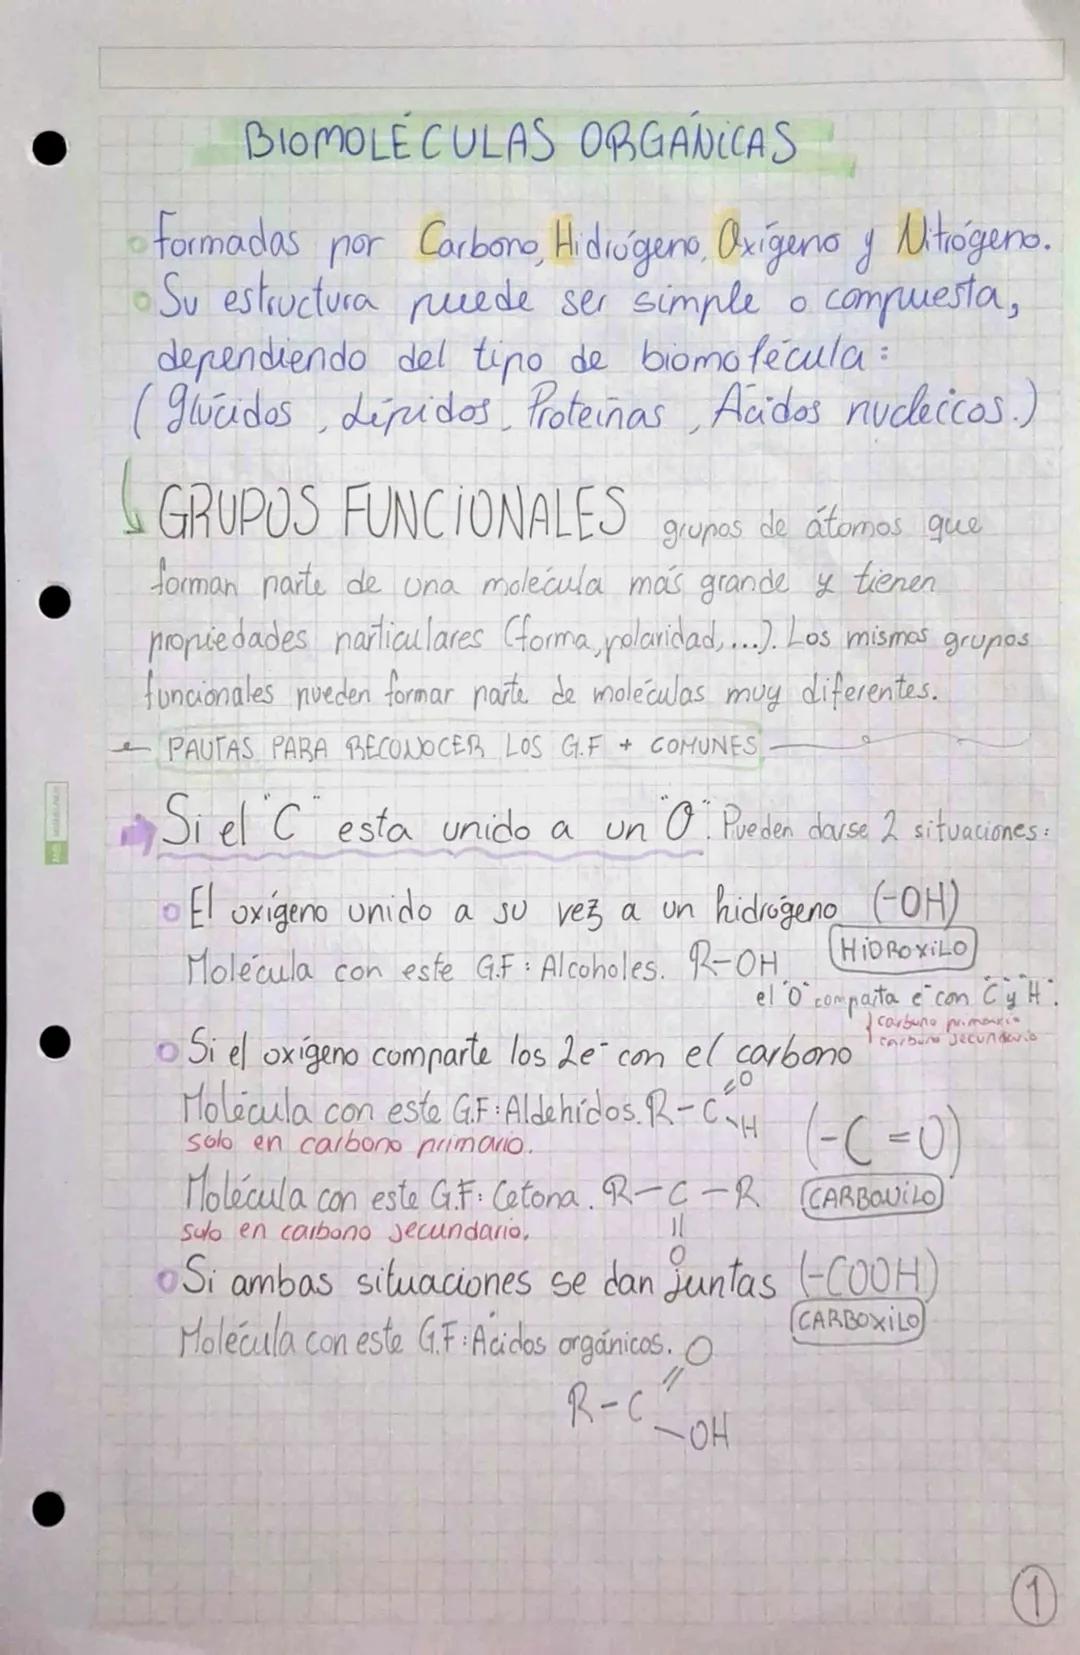 BIOMOLÉCULAS ORGÁNICAS
Formadas por Carbono, Hidrógeno, Oxígeno y Nitrógeno.
Su estructura puede ser simple o compuesta,
dependiendo del tipo de biomolécula:
(glúcidos, Lípidos, Proteínas, Ácidos nucleicos.)
GRUPOS FUNCIONALES grupos de átomos que
forman parte de una molécula más grande y tienen
propiedades particulares (forma, polaridad,...). Los mismos grupos
funcionales pueden formar parte de moléculas muy diferentes.
PAUTAS PARA RECONOCER LOS G.F + COMUNES
Si el "C" esta unido a un "O". Pueden darse 2 situaciones:
El oxígeno unido a su vez a un hidrógeno (-OH)
Molécula con este G.F: Alcoholes. R-OH HIDROXILO
el "O" comparta e⁻ con "C" y "H".
carbono primario
carbono secundario
Si el oxígeno comparte los 2e⁻ con el carbono
Molécula con este G.F: Aldehídos. R-C=O -H (-C=O)
solo en carbono primario.
Molécula con este G.F: Cetona. R-C-R CARBONILO
solo en carbono secundario. ||
O
Si ambas situaciones se dan juntas (-COOH)
CARBOXILO
Molécula con este G.F: Ácidos orgánicos. O
R-C //
-OH
1